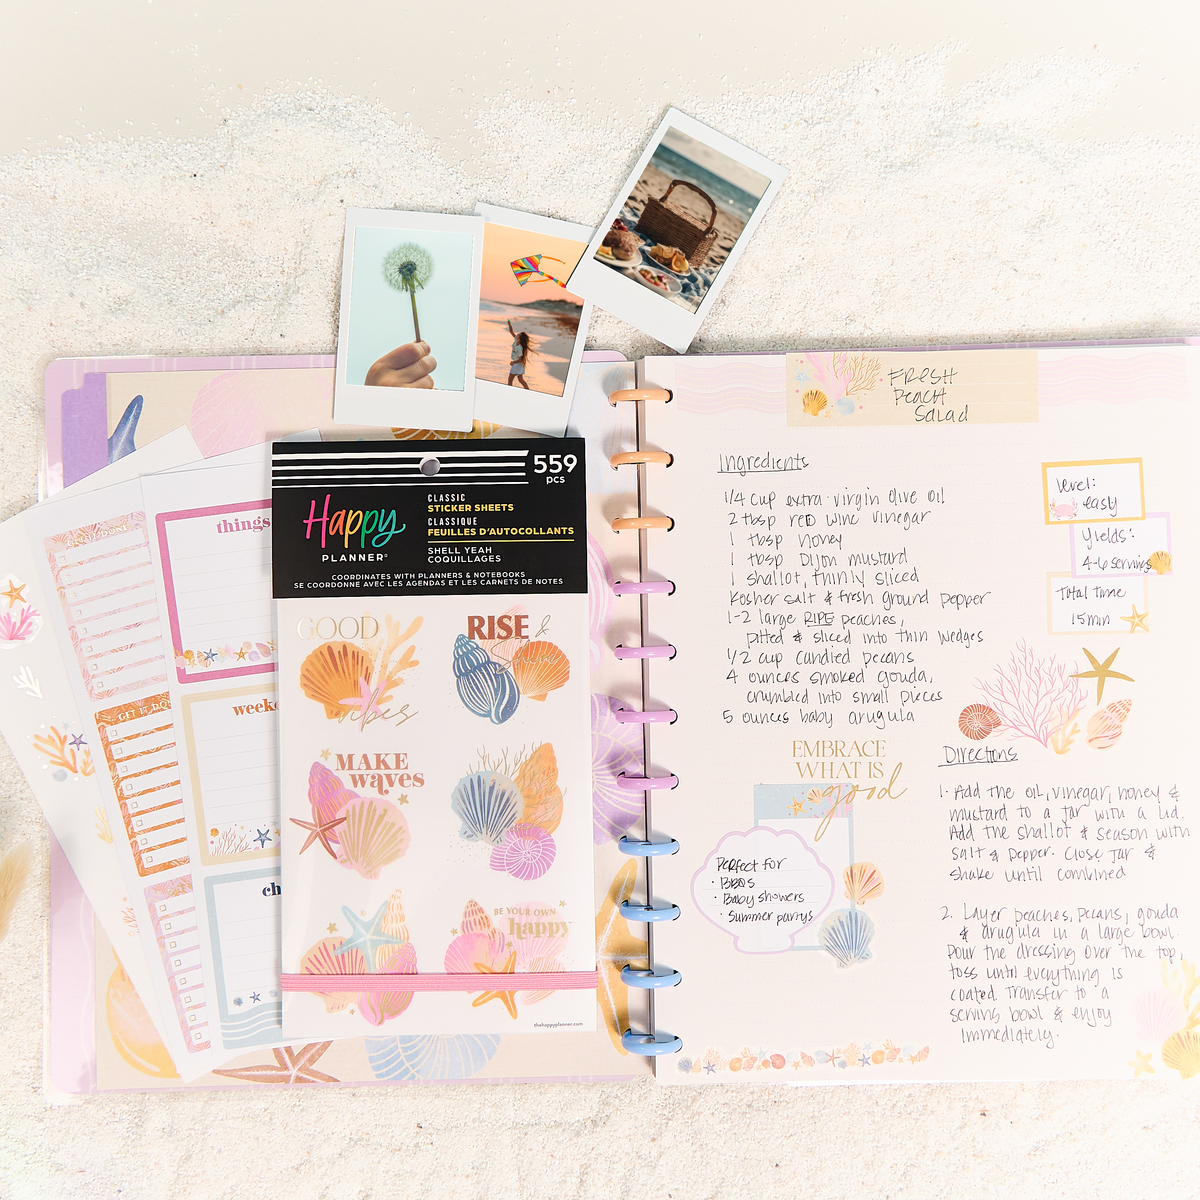 559
pcs
Happy
PLANNER®
CLASSIC
STICKER SHEETS
CLASSIQUE
FEUILLES D'AUTOCOLLANTS
SHELL YEAH
COQUILLAGES
COORDINATES WITH PLANNERS & NOTEBOOKS
SE COORDONNE AVEC LES AGENDAS ET LES CARNETS DE NOTES
GOOD
vibes
RISE &
Shine
MAKE
waves
BE YOUR OWN
happy
thehappyplanner.com
things
GET IT DO
week
ch
FRESH
Peach
Salad
Ingredients
1/4 cup extra-virgin olive oil
2 tbsp red wine vinegar
1 tbsp honey
1 tbsp Dijon mustard
1 shallot, thinly sliced
Kosher salt & fresh ground pepper
1-2 large RIPE peaches,
pitted & sliced into thin wedges
1/2 cup candied pecans
4 ounces smoked gouda,
crumbled into small pieces
5 ounces baby arugula
level:
easy
Yields:
4-6 servings
Total Time
15 min
EMBRACE
WHAT IS
good
Perfect for
• BBQs
• Baby showers
• Summer partys
Directions
1. Add the oil, vinegar, honey &
mustard to a jar with a lid.
Add the shallot & season with
salt & pepper. Close jar &
shake until combined
2. Layer peaches, pecans, gouda
& arugula in a large bowl.
Pour the dressing over the top,
toss until everything is
coated. Transfer to a
serving bowl & enjoy
immediately.